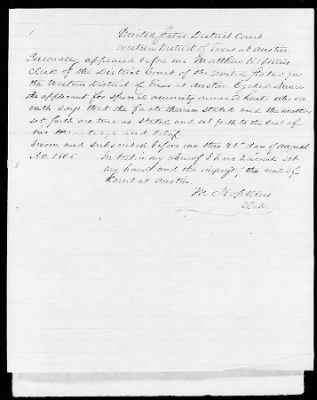 United States District Court
Western District of Texas at Austin
Personally appeared before me Matthew Hopkins
Clerk of the District Court of the United States for
the Western District of Texas at Austin
the applicant for special amnesty who on
oath says that the facts therein stated and the matters
set forth are true as stated and set forth to the best of
his knowledge and belief
Sworn and subscribed before me this 31st day of August
A.D. 1865. In testimony whereof I have hereunto set
my hand and the impress of the seal of
Court at Austin
M Hopkins
Clerk